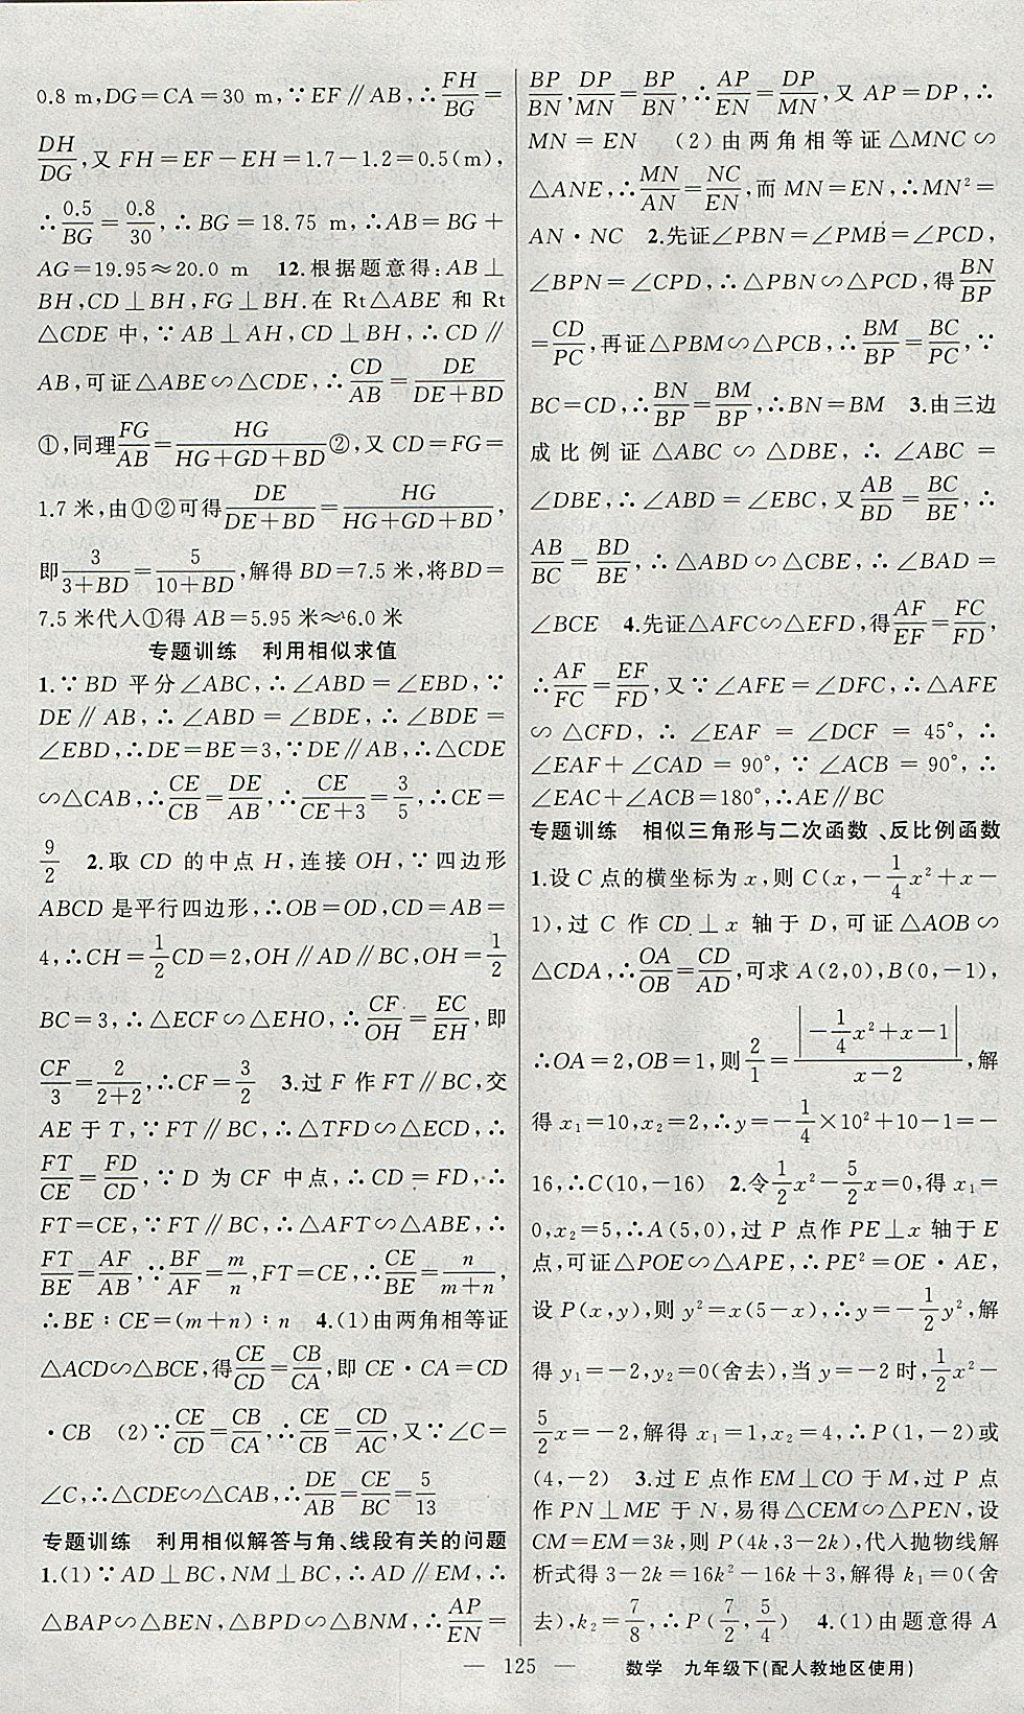 0.8 m,DG=CA=30 m,∵EF∥AB,∴FH/BG=
DH/DG,又 FH=EF-EH=1.7-1.2=0.5(m),
∴0.5/BG=0.8/30,∴BG=18.75 m,∴AB=BG+
AG=19.95≈20.0 m 12.根据题意得:AB⊥
BH,CD⊥BH,FG⊥BH.在 Rt△ABE 和 Rt
△CDE 中,∵AB⊥AH,CD⊥BH,∴CD∥
AB,可证△ABE∽△CDE,∴CD/AB=DE/(DE+BD)
①,同理FG/AB=HG/(HG+GD+BD)②,又 CD=FG=
1.7 米,由①②可得DE/(DE+BD)=HG/(HG+GD+BD),
即3/(3+BD)=5/(10+BD),解得 BD=7.5 米,将BD=
7.5 米代入①得 AB=5.95 米≈6.0 米
专题训练 利用相似求值
1.∵BD 平分∠ABC,∴∠ABD=∠EBD,∵
DE∥AB,∴∠ABD=∠BDE,∴∠BDE=
∠EBD,∴DE=BE=3,∵DE∥AB,∴△CDE
∽△CAB,∴CE/CB=DE/AB,∴CE/(CE+3)=3/5,∴CE=
9/2 2.取 CD 的中点 H,连接 OH,∵四边形
ABCD 是平行四边形,∴OB=OD,CD=AB=
4,∴CH=1/2CD=2,OH∥AD∥BC,OH=1/2
BC=3,∴△ECF∽△EHO,∴CF/OH=EC/EH,即
CF/3=2/(2+2),∴CF=3/2 3.过 F 作 FT∥BC,交
AE 于 T,∵FT∥BC,∴△TFD∽△ECD,∴
FT/CE=FD/CD,∵D 为 CF 中点,∴CD=FD,∴
FT=CE,∵FT∥BC,∴△AFT∽△ABE,∴
FT/BE=AF/AB,∵BF/AF=m/n,FT=CE,∴CE/BE=n/(m+n),
∴BE∶CE=(m+n)∶n 4.(1)由两角相等证
△ACD∽△BCE,得CE/CD=CB/CA,即 CE·CA=CD
·CB (2)∵CE/CD=CB/CA,∴CE/CB=CD/AC,又∵∠C=
∠C,∴△CDE∽△CAB,∴DE/AB=CE/BC=5/13
专题训练 利用相似解答与角、线段有关的问题
1.(1)∵AD⊥BC,NM⊥BC,∴AD∥EM,∴
△BAP∽△BEN,△BPD∽△BNM,∴AP/EN=
BP/BN,DP/MN=BP/BN,∴AP/EN=DP/MN,又 AP=DP,∴
MN=EN (2)由两角相等证△MNC∽
△ANE,∴MN/AN=NC/EN,而 MN=EN,∴MN²=
AN·NC 2.先证∠PBN=∠PMB=∠PCD,
∠BPN=∠CPD,∴△PBN∽△PCD,得BN/BP
=CD/PC,再证△PBM∽△PCB,∴BM/BP=BC/PC,∵
BC=CD,∴BN/BP=BM/BP,∴BN=BM 3.由三边
成比例证△ABC∽△DBE,∴∠ABC=
∠DBE,∴∠ABD=∠EBC,又AB/BD=BC/BE,∴
AB/BC=BD/BE,∴△ABD∽△CBE,∴∠BAD=
∠BCE 4.先证△AFC∽△EFD,得AF/EF=FC/FD,
∴AF/FC=EF/FD,又∵∠AFE=∠DFC,∴△AFE
∽△CFD,∴∠EAF=∠DCF=45°,∴
∠EAF+∠CAD=90°,∵∠ACB=90°,∴
∠EAC+∠ACB=180°,∴AE∥BC
专题训练 相似三角形与二次函数、反比例函数
1.设 C 点的横坐标为 x,则 C(x,-1/4x²+x-
1),过 C 作 CD⊥x 轴于 D,可证△AOB∽
△CDA,∴OA/OB=CD/AD,可求 A(2,0),B(0,-1),
∴OA=2,OB=1,则2/1=|-1/4x²+x-1|/(x-2),解
得 x₁=10,x₂=2,∴y=-1/4×10²+10-1=-
16,∴C(10,-16) 2.令1/2x²-5/2x=0,得 x₁=
0,x₂=5,∴A(5,0),过 P 点作 PE⊥x 轴于 E
点,可证△POE∽△APE,∴PE²=OE·AE,
设 P(x,y),则 y²=x(5-x),∴y=-1/2y²,解
得 y₁=-2,y₂=0(舍去),当 y=-2 时,1/2x²-
5/2x=-2,解得 x₁=1,x₂=4,∴P(1,-2)或
(4,-2) 3.过 E 点作 EM⊥CO 于 M,过 P 点
作 PN⊥ME 于 N,易得△CEM∽△PEN,设
CM=EM=3k,则 P(4k,3-2k),代入抛物线解
析式得 3-2k=16k²-16k+3,解得 k₁=0(舍
去),k₂=7/8,∴P(7/2,5/4) 4.(1)由题意得 A
— 125 — 数学 九年级下(配人教地区使用)